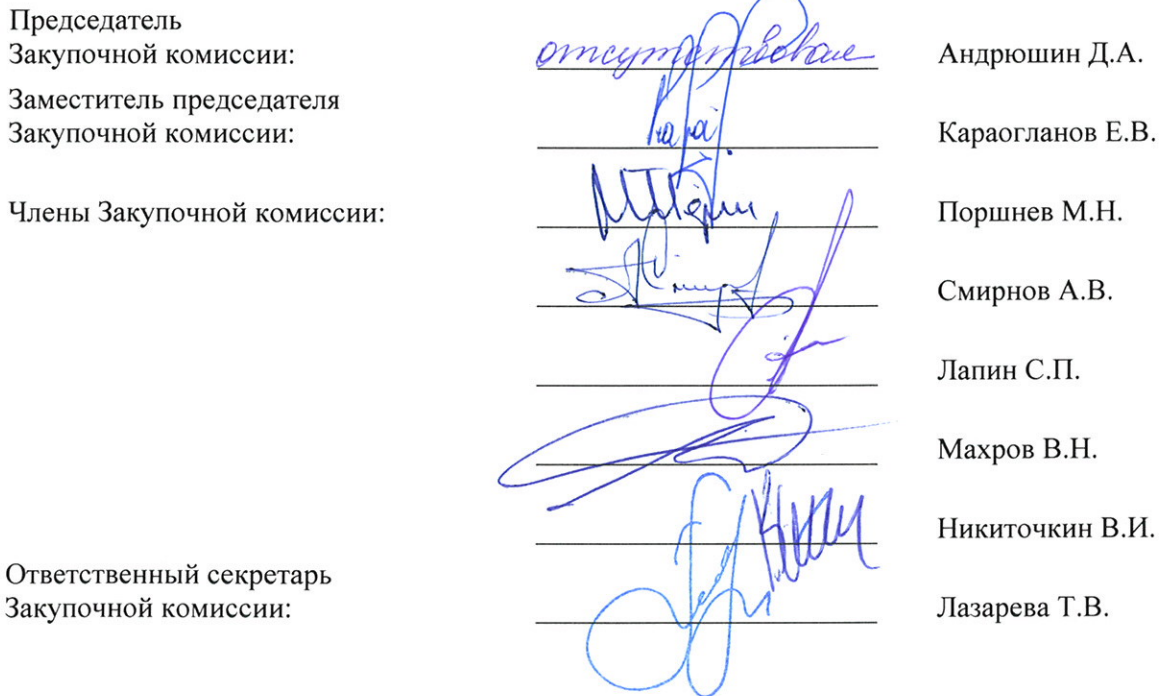 Председатель
Закупочной комиссии: отсутствовал Андрюшин Д.А.
Заместитель председателя
Закупочной комиссии: Караогланов Е.В.
Члены Закупочной комиссии: Поршнев М.Н.
Смирнов А.В.
Лапин С.П.
Махров В.Н.
Никиточкин В.И.
Ответственный секретарь
Закупочной комиссии: Лазарева Т.В.